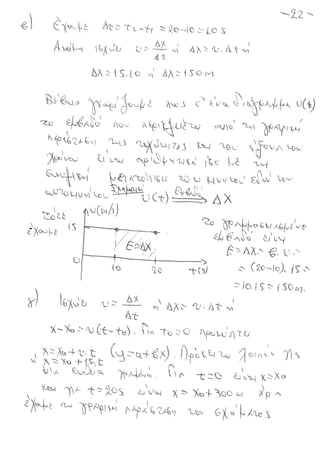 -22-
β) Έχουμε Δt = t₂-t₁ = 20-10 = 10s
Ακόμη ισχύει υ = Δx/Δt ή Δx = υ.Δt ή
Δx = 15.10 ή Δx = 150m
Βέβαια γνωρίζουμε πως σ' ένα διάγραμμα υ(t)
το εμβαδό που περικλείεται από τη γραφική
παράσταση της ταχύτητας και τον άξονα του
χρόνου είναι αριθμητικά ίσο με τη
μετατόπιση του κινητού εδώ του
αυτοκινήτου υ(t) Εμβαδό → Δx
Τότε
έχουμε
υ(m/s)
15
0
10 20 t(s)
E=Δx
το γραμμοσκιασμένο
εμβαδό είναι
E = Δx = β.υ =
= (20-10).15 =
= 10.15 = 150m.
γ) Ισχύει υ = Δx/Δt ή Δx = υ.Δt ή
x-x₀ = υ(t-t₀). Για t₀=0 προκύπτει
x = x₀+υ.t (y=α+βx). Πρόκειται λοιπόν για
ή x = x₀+15t
μια ευθεία γραμμή. Για t=0 είναι x=x₀
και για t=20s είναι x = x₀+300m άρα
έχουμε τη γραφική παράσταση του σχήματος